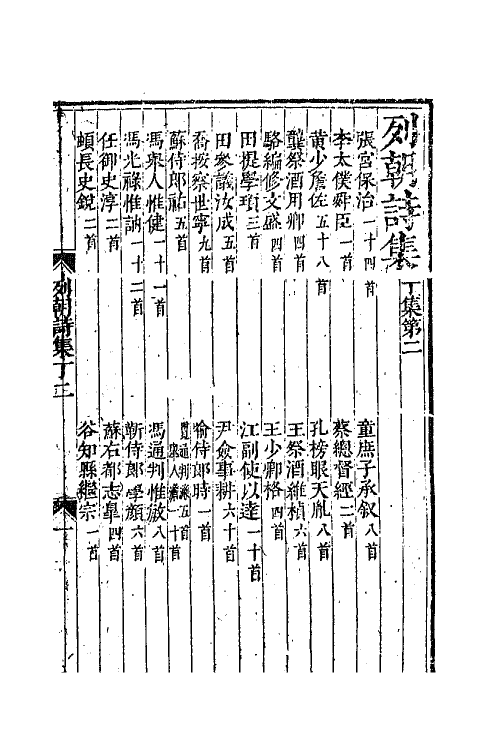 列朝詩集丁集第二
張宮保治一十四首
童庶子承叙八首
李太僕舜臣一首
蔡總督經二首
黃少詹佐五十八首
孔榜眼天胤八首
龔祭酒用卿四首
王祭酒維楨六首
駱編修文盛四首
王少卿格四首
田提學頊三首
江副使以達一十首
田參議汝成五首
尹僉事耕六十首
喬按察世寧九首
喻侍郎時一首
蘇侍郎祐五首
馮舉人惟健一十一首
馮通判惟敏八首
馮光祿惟訥一十二首
靳侍郎學顏六首
任御史淳二首
蘇右都志皐四首
頓長史銳二首
谷知縣繼宗一首
列朝詩集丁二